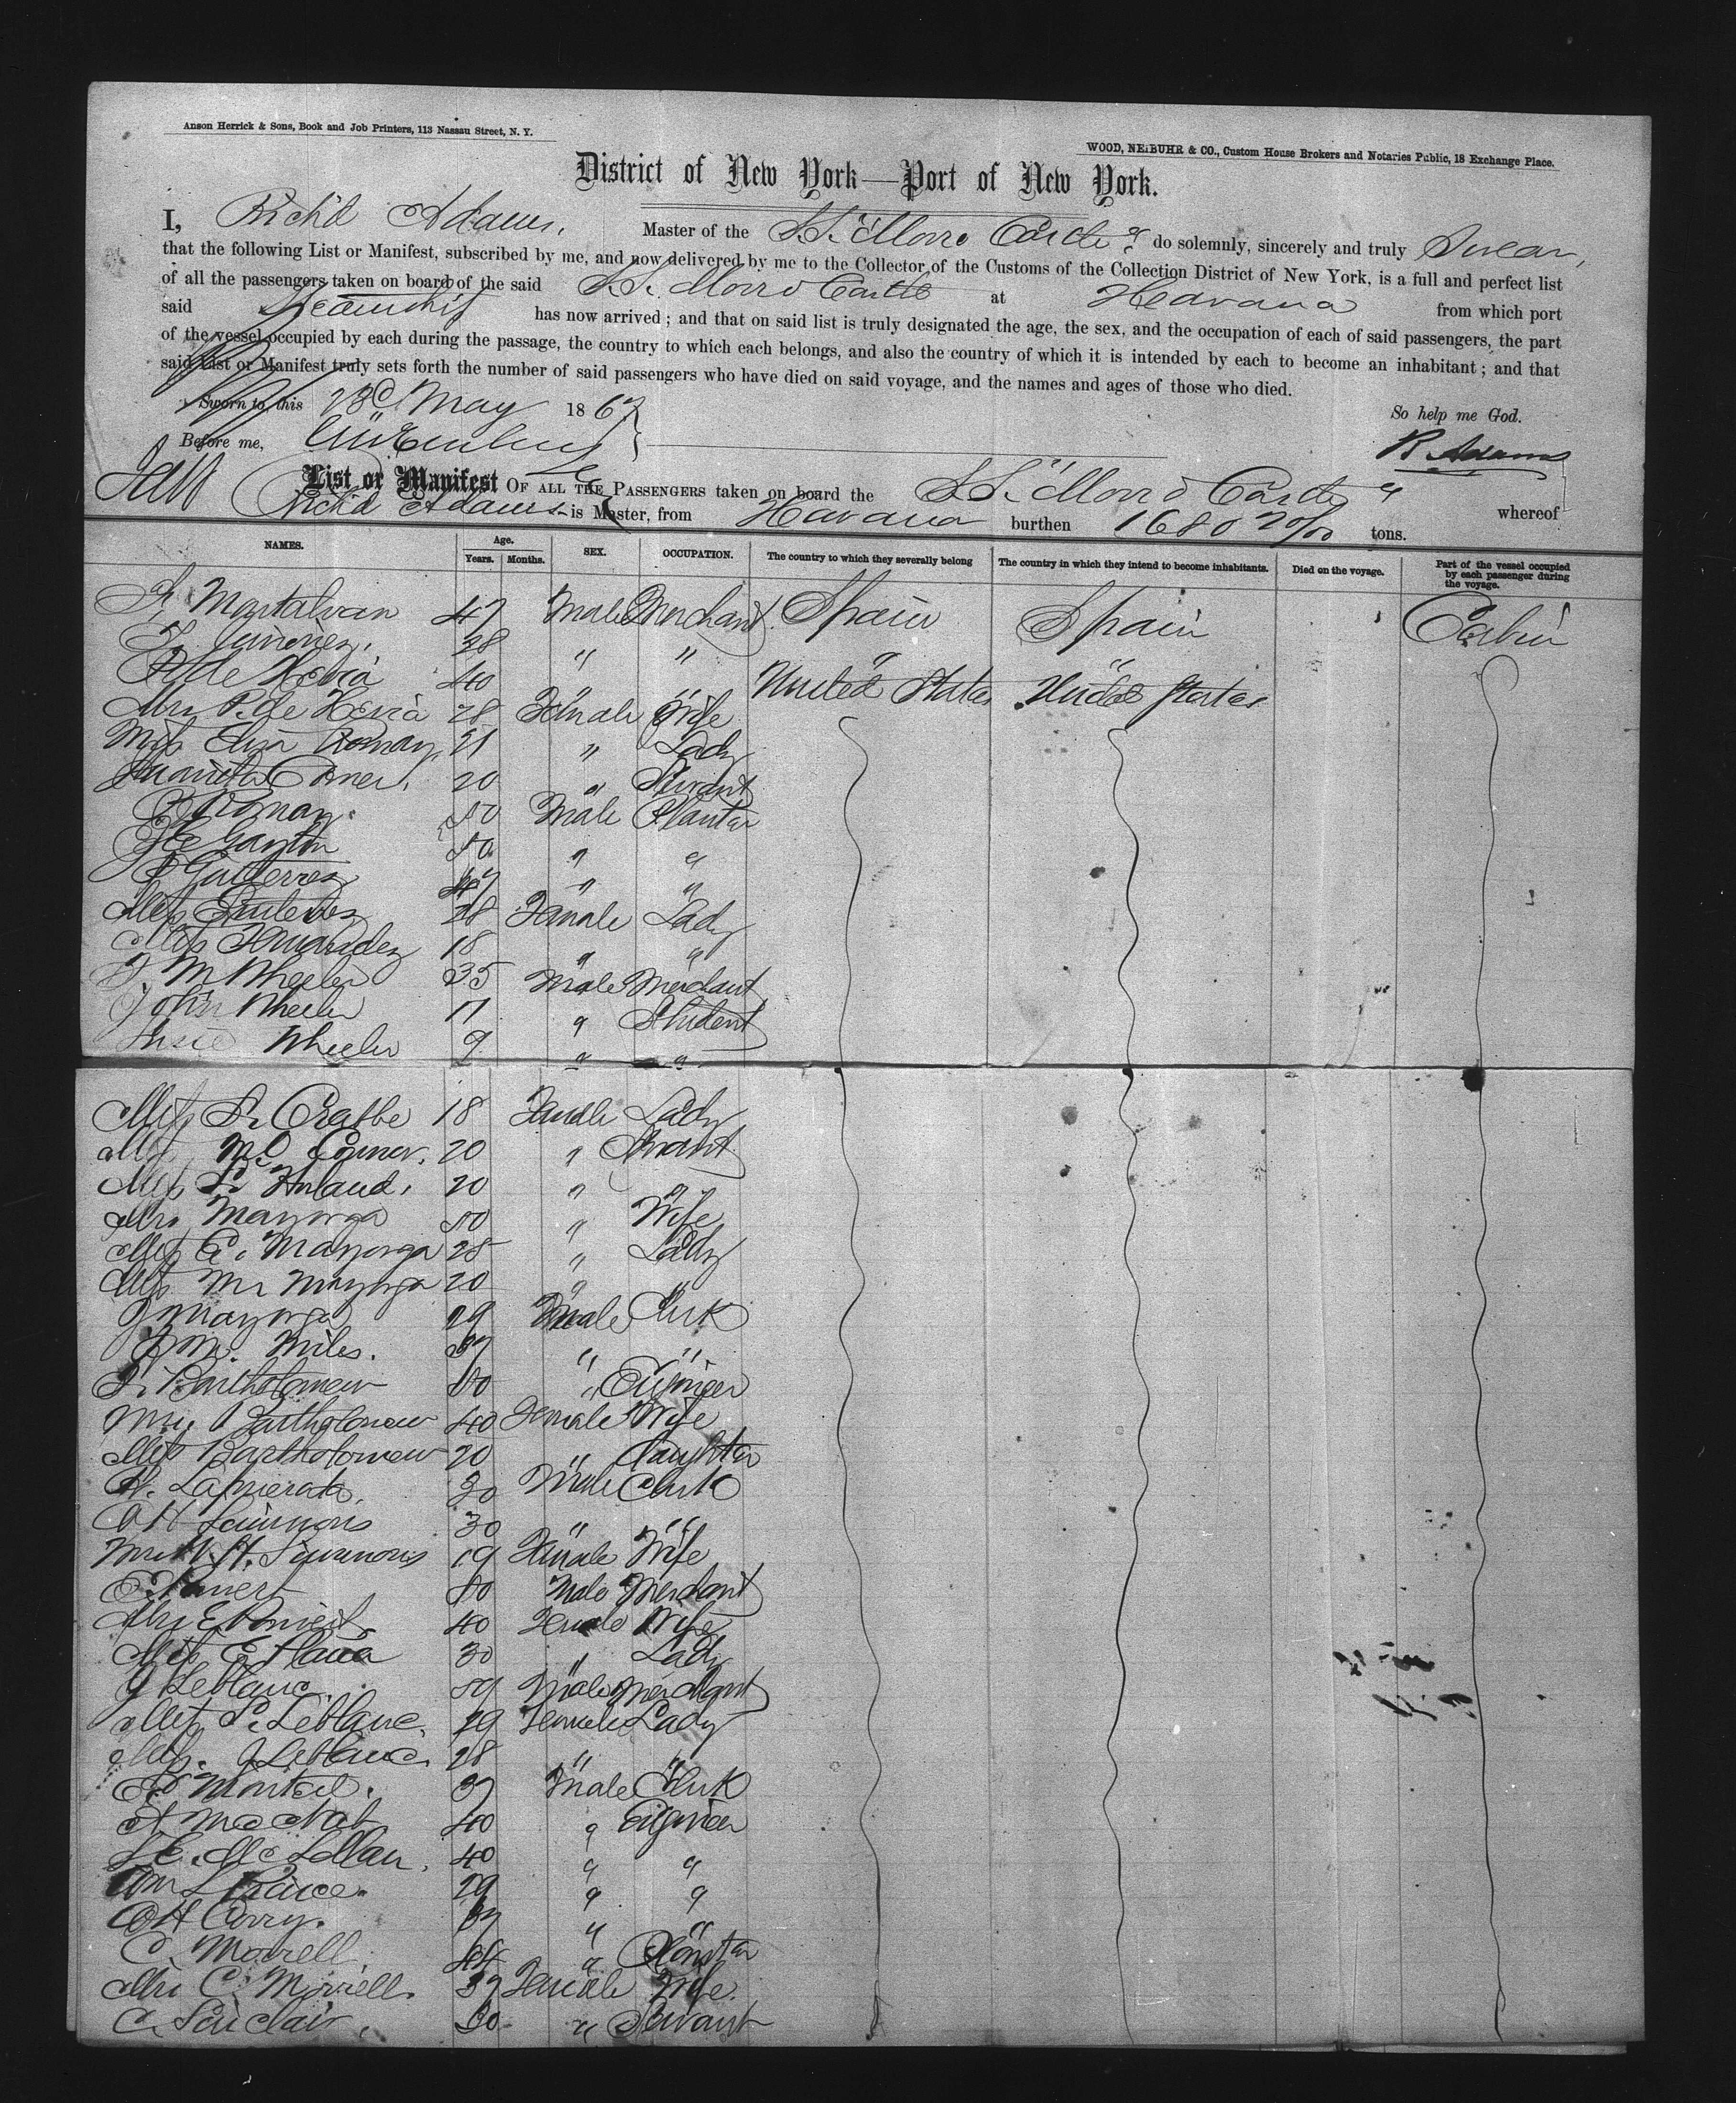 Anson Herrick & Sons, Book and Job Printers, 113 Nassau Street, N. Y.
WOOD, NEIBUHR & CO., Custom House Brokers and Notaries Public, 18 Exchange Place.
District of New York—Port of New York.
I, Rich'd Adams, Master of the S.S. "Morro Castle" do solemnly, sincerely and truly Swear,
that the following List or Manifest, subscribed by me, and now delivered by me to the Collector of the Customs of the Collection District of New York, is a full and perfect list
of all the passengers taken on board of the said S.S. Morro Castle at Havana from which port
said Steamship has now arrived ; and that on said list is truly designated the age, the sex, and the occupation of each of said passengers, the part
of the vessel occupied by each during the passage, the country to which each belongs, and also the country of which it is intended by each to become an inhabitant ; and that
said List or Manifest truly sets forth the number of said passengers who have died on said voyage, and the names and ages of those who died.
Sworn to, this 23d May 1867 So help me God.
Before me, R Adams
List or Manifest OF ALL THE PASSENGERS taken on board the S.S. "Morro Castle" whereof
Rich'd Adams is Master, from Havana burthen 1680 20/00 tons.
NAMES. Age. Years. Months. SEX. OCCUPATION. The country to which they severally belong The country in which they intend to become inhabitants. Died on the voyage. Part of the vessel occupied by each passenger during the voyage.
Montalvan 47 Male Merchant Spain Spain Cabin
28 " " " "
de Hevia 40 " " United States United States
Mrs P. de Hevia 28 Female Wife
Miss Eliza Roman 21 " Lady
Juanita 20 " Servant
Roman 50 Male Planter
50 " "
Gutierrez 47 " "
Miss Gutierrez 28 Female Lady
Miss Hernandez 18 " "
T. M Wheeler 35 Male Merchant
John Wheeler 11 " Student
Wheeler 9 " "
Miss S. Crabbe 18 Female Lady
Miss Mc Connor. 20 " Servant
Miss 20 " "
Mrs Mayorga 50 " Wife
Miss C. Mayorga 25 " Lady
Miss M. Mayorga 20 " "
J Mayorga 29 Male Clerk
Miles. 37 " "
S. Bartholomew 50 " Engineer
Mrs Bartholomew 40 Female Wife
Miss Bartholomew 20 " Daughter
H. 30 Male Clerk
H Simmons 30 " "
Mrs H. Simmons 19 Female Wife
E. 50 Male Merchant
Mrs E 40 Female Wife
Miss E 30 " Lady
J Leblanc 59 Male Merchant
Miss S. Leblanc. 29 Female Lady
Miss J Leblanc. 28 " "
Monteil. 37 Male Clerk
A. Mac Nab 40 " Engineer
Mc Lellan. 40 " "
Wm L Prince. 29 " "
H Corry. 37 " "
C. Morrell 44 " Planter
Mrs C. Morrell. 37 Female Wife.
C. Sinclair. 50 " Servant